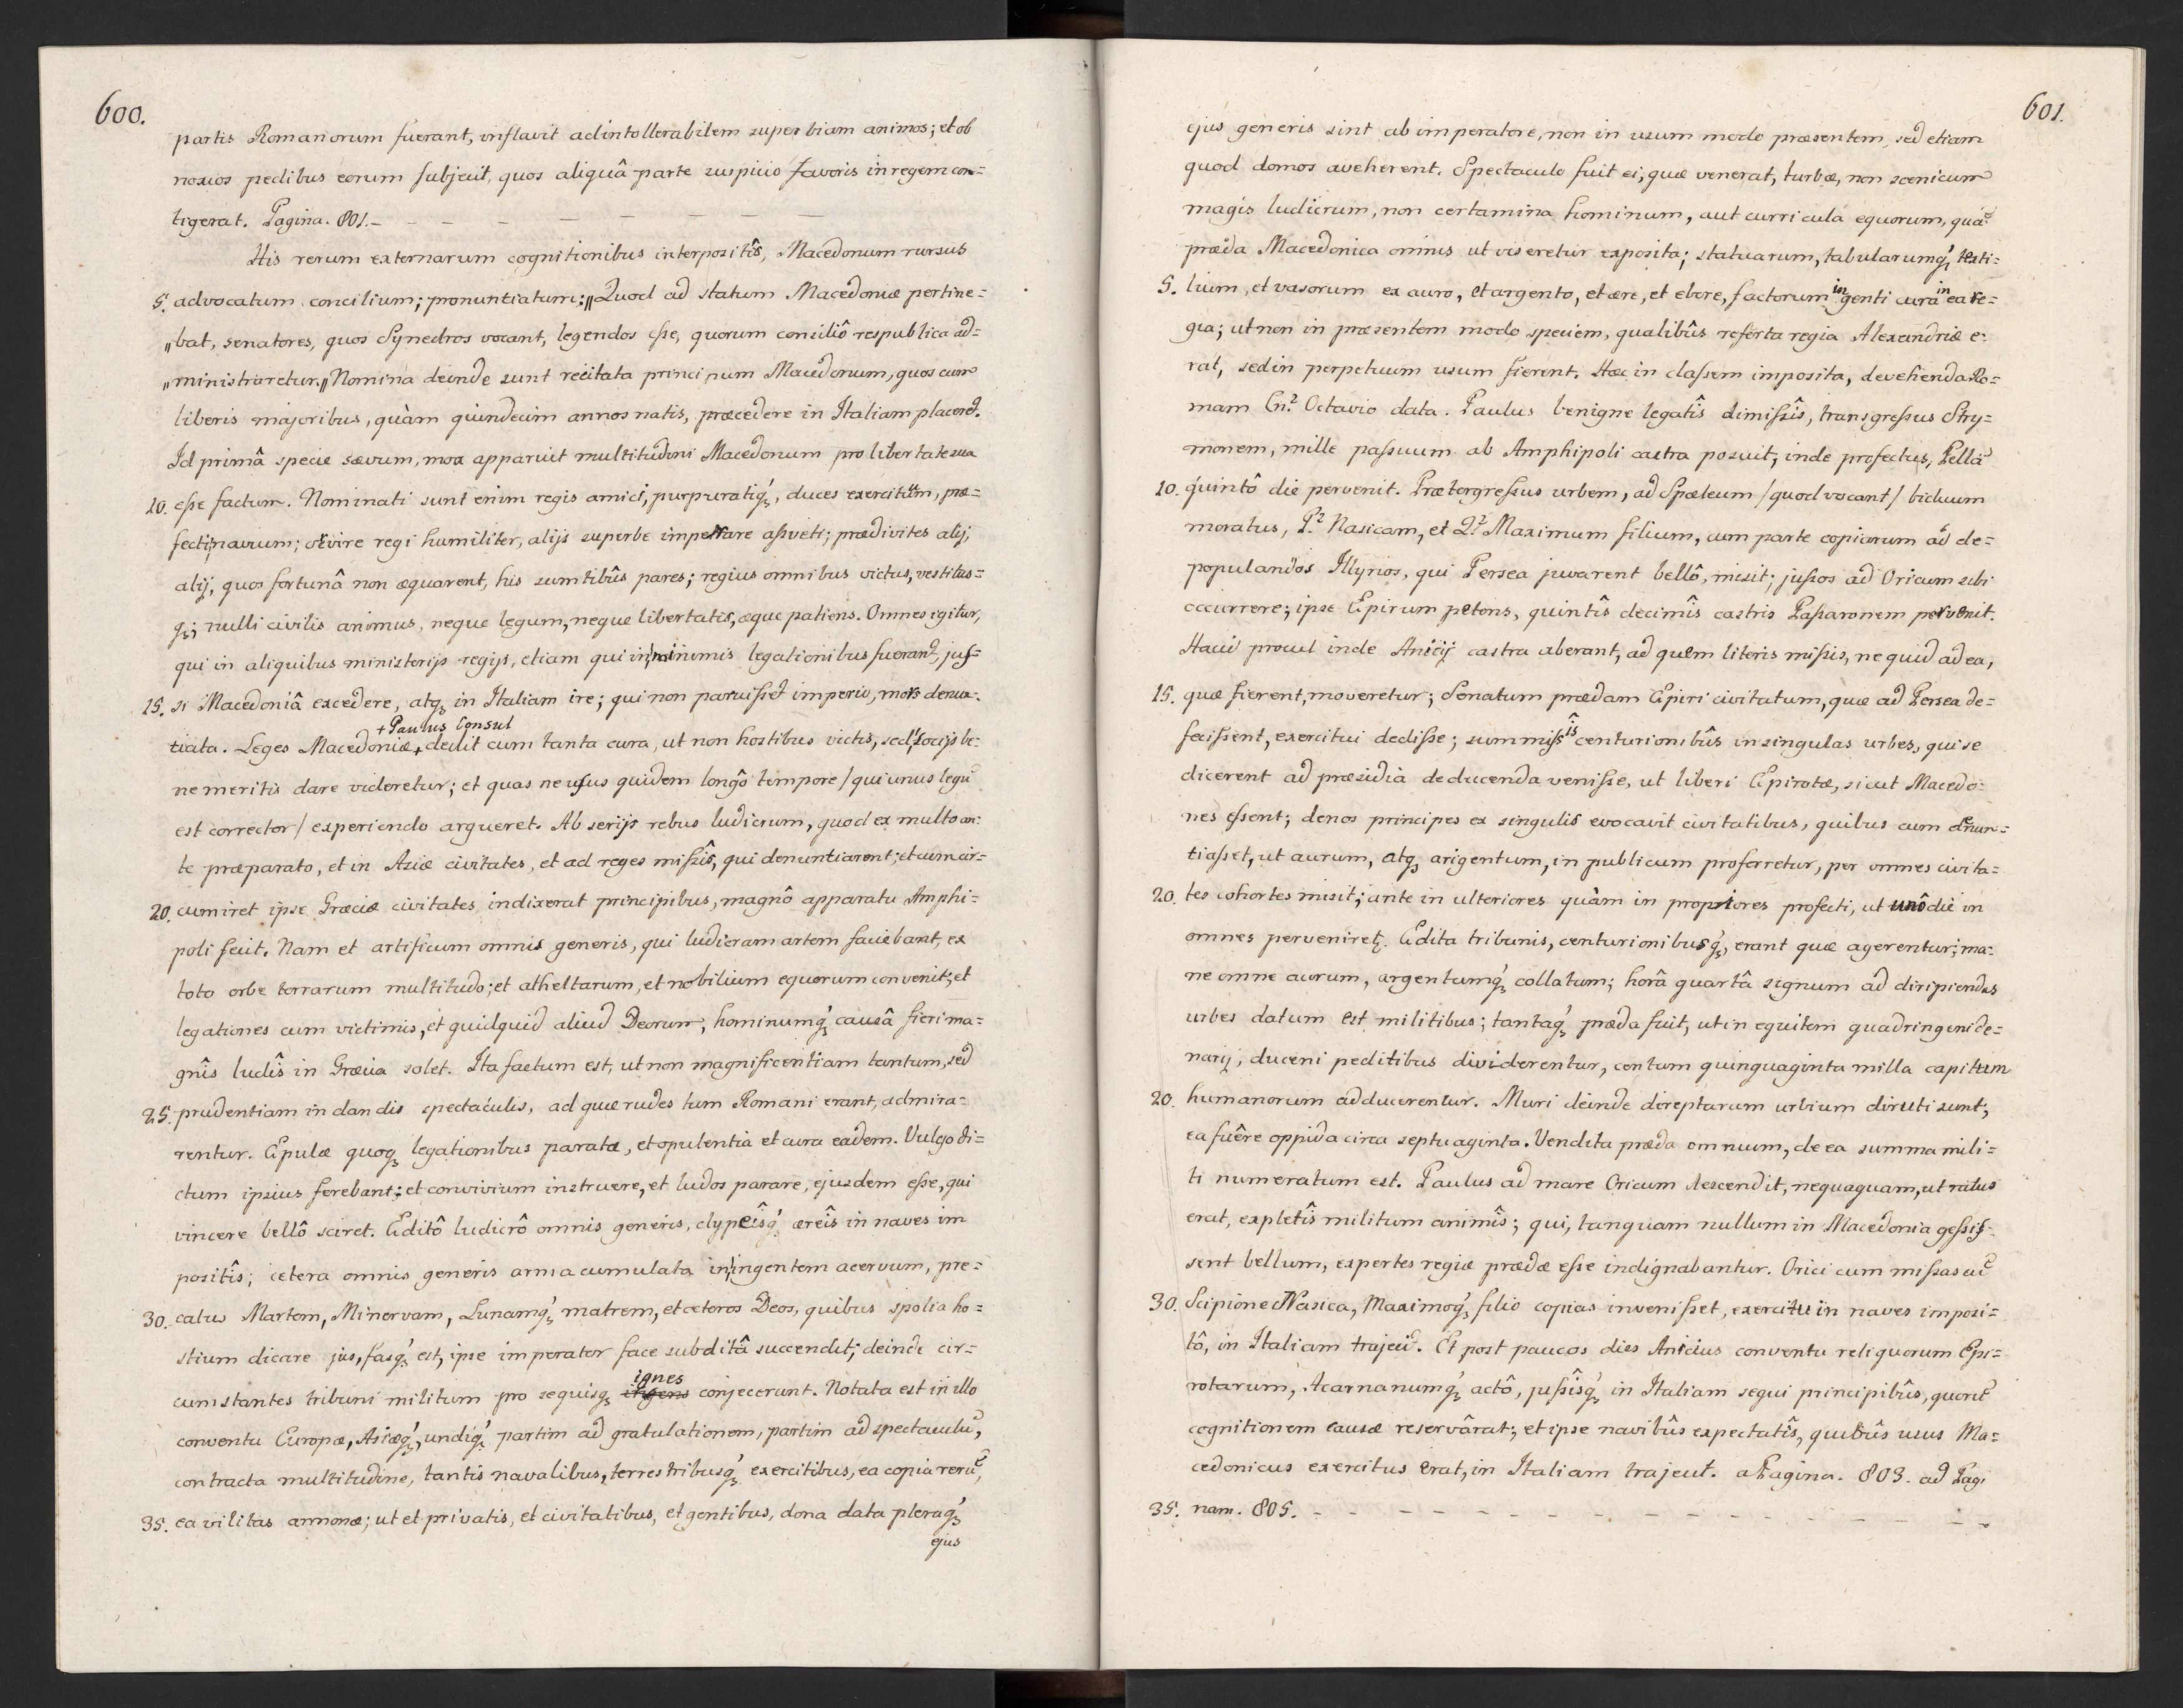 600.
partis Romanorum fuerant, inflavit ad intollerabilem superbiam animos; et ob
noxios pedibus eorum subjecit, quos aliquâ parte suspicio favoris in regem con=
tigerat. Pagina. 801. – – – – – – – –
His rerum externarum cognitionibus interpositîs, Macedonum rursus
5. advocatum concilium; pronuntiatum: „Quod ad statum Macedoniæ pertine=
„bat, senatores, quos Synedros vocant, legendos esse, quorum consiliô respublica ad=
„ministraretur.„ Nomina deinde sunt recitata principum Macedonum, quos cum
liberis majoribus, quàm quindecim annos natis, præcedere in Italiam placeret.
Id primâ specie sævum, mox apparuit multitudini Macedonum pro libertate sua
10. esse factum. Nominati sunt enim regis amici, purpuratiq́ꝫ, duces exercitûum, præ=
fecti navium; servire regi humiliter, alijs superbe imperare assveti; prædivites alij,
alij, quos fortunâ non æquarent, his sumtibûs pares; regius omnibus victus, vestitus=
q́ꝫ; nulli civilis animus, neque legum, neque libertatis, æque patiens. Omnes igitur,
qui in aliquibus ministerijs regijs, etiam qui in minimis legationibus fuerant, jus=
15. si Macedoniâ excedere, atqꝫ in Italiam ire; qui non paruisset imperio, mors denun=
+ Paulus Consul
tiata. Leges Macedoniæ + dedit cum tanta cura, ut non hostibus victis, sed socijs be=
ne meritis dare videretur; et quas ne usus quidem longô tempore / qui unus legũ
est corrector / experiendo argueret. Ab serijs rebus ludicrum, quod ex multo an=
te præparato, et in Asiæ civitates, et ad reges missîs, qui denuntiarent; et cum cir=
20. cumiret ipse Græciæ civitates, indixerat principibus, magnô apparatu Amphi=
poli fecit. Nam et artificum omnis generis, qui ludicram artem faciebant, ex
toto orbe terrarum multitudo; et atheltarum, et nobilium equorum convenit; et
legationes cum victimis, et quidquid aliud Deorum, hominumq́ꝫ causâ fieri ma=
gnîs ludîs in Græcia solet. Ita factum est, ut non magnificentiam tantum, sed
25. prudentiam in dandis spectaculis, ad quæ rudes tum Romani erant, admira=
rentur. Epulæ quoqꝫ legationibus paratæ, et opulentia et cura eadem. Vulgo di=
ctum ipsius ferebant; et convivium instruere, et ludos parare, ejusdem esse, qui
vincere bellô sciret. Editô ludicrô omnis generis, clypeîsq́ꝫ æreîs in naves im
positîs; cetera omnis generis arma cumulata in ingentem acervum, pre=
30. catus Martem, Minervam, Lunamq́ꝫ matrem, et ceteros Deos, quibus spolia ho=
stium dicare jus, fasq́ꝫ est, ipse imperator face subditâ succendit; deinde cir=
ignes
cumstantes tribuni militum pro se quisqꝫ conjecerunt. Notata est in illo
conventu Europæ, Asiæq́ꝫ, undiq́ꝫ partim ad gratulationem, partim ad spectaculũ,
contracta multitudine, tantis navalibus, terrestribusq́ꝫ exercitibus, ea copia rerũ,
35. ea vilitas annonæ; ut et privatis, et civitatibus, et gentibus, dona data pleraq́ꝫ
ejus
601.
ejus generis sint ab imperatore, non in usum modo præsentem, sed etiam
quod domos aveherent. Spectaculo fuit ei, quæ venerat, turbæ, non scenicum
magis ludicrum, non certamina hominum, aut curricula equorum, quã
præda Macedonica omnis ut viseretur exposita; statuarum, tabularumq́ꝫ texti=
5. lium, et vasorum ex auro, et argento, et ære, et ebore, factorum ingenti cura in ea re=
gia; ut non in præsentem modo speciem, qualibûs referta regia Alexandriæ e=
rat, sed in perpetuum usum fierent. Hæc in classem imposita, devehenda Ro=
mam Cn? Octavio data. Paulus benigne legatîs dimissîs, transgressus Stry=
monem, mille passuum ab Amphipoli castra posuit; inde profectus, Pellã
10. quintô die pervenit. Prætergressus urbem, ad Spæleum / quod vocant / biduum
moratus, P? Nasicam, et Q? Maximum filium, cum parte copiarum ad de=
populandos Illyrios, qui Persea juvarent bellô, misit; jussos ad Oricum sibi
occurrere; ipse Epirum petens, quintîs decimîs castris Passaronem pervenit.
Haud procul inde Anicij castra aberant, ad quem literis missis, ne quid ad ea,
15. quæ fierent, moveretur; Senatum prædam Epiri civitatum, quæ ad Persea de=
fecissent, exercitui dedisse; summissîs centurionibûs in singulas urbes, qui se
dicerent ad præsidia deducenda venisse, ut liberi Epirotæ, sicut Macedo=
nes essent; denos principes ex singulis evocavit civitatibus, quibus cum denun=
tiasset, ut aurum, atqꝫ argentum, in publicum proferretur, per omnes civita=
20. tes cohortes misit; ante in ulteriores quàm in propriores profecti, ut unô die in
omnes pervenireꝫ. Edita tribunis, centurionibusq́ꝫ, erant quæ agerentur; ma=
ne omne aurum, argentumq́ꝫ collatum; horâ quartâ signum ad diripiendas
urbes datum est militibus; tantaq́ꝫ præda fuit, ut in equitem quadringeni de=
narij, duceni peditibus dividerentur, centum quinquaginta milla capitum
20. humanorum adducerentur. Muri deinde direptarum urbium diruti sunt;
ea fuêre oppida circa septuaginta. Vendita præda omnium, de ea summa mili=
ti numeratum est. Paulus ad mare Oricum descendit, nequaquam, ut ratus
erat, expletîs militum animîs; qui, tanquam nullum in Macedonia gessis=
sent bellum, expertes regiæ prædæ esse indignabantur. Orici cum missas cũ
30. Scipione Nasica, Maximoq́ꝫ filio copias invenisset, exercitu in naves imposi=
tô, in Italiam trajecit. Et post paucos dies Anicius conventu reliquorum Epi=
rotarum, Acarnanumq́ꝫ actô, jussîsq́ꝫ in Italiam sequi principibûs, quorũ
cognitionem causæ reservârat; et ipse navibûs expectatîs, quibûs usus Ma=
cedonicus exercitus erat, in Italiam trajecit. a Pagina. 803. ad Pagi
35. nam. 805. – – – – – – – – – – – – – – – –